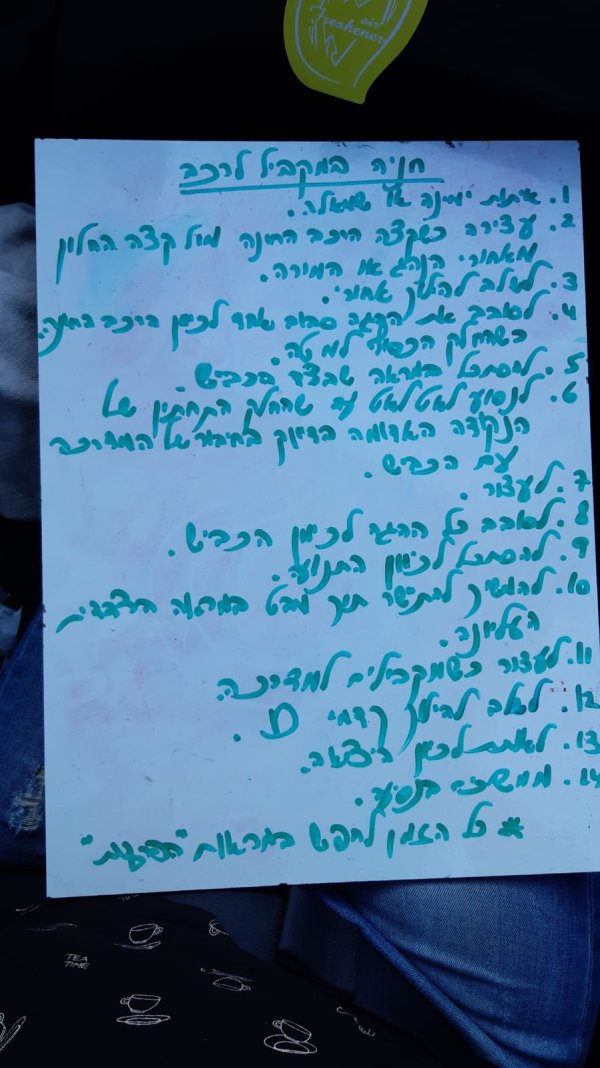 air
Freshener
חניה במקביל לרכב
1. איתות ימינה או שמאלה.
2. עצירה כשקצה הרכב החונה מול קצה החלון
מאחורי הנהג או המורה.
3. לשלב להילוך אחורי.
4. לסובב את ההגה סבוב אחד לכיוון הרכב החונה.
כשהחלק הכסוף למטה.
5. להסתכל במראה שבצד הכביש.
6. לנסוע לאט לאט עד שהחלק התחתון של
הנקודה האדומה בדיוק בחיבור של המדרכה
עם הכביש.
7. לעצור.
8. לסובב כל ההגה לכיוון הכביש.
9. להסתכל לכיוון התנועה.
10. להמשיך להתיישר תוך מבט במראה הצדדית
העליונה.
11. לעצור כשמקבילים למדרכה.
12. לשלב להילוך קדמי D.
13. לאותת לכיוון היציאה.
14. ממשיכה בנסיעה.
* כל הזמן לחפש במראות "הפרעות"
TEA
TIME